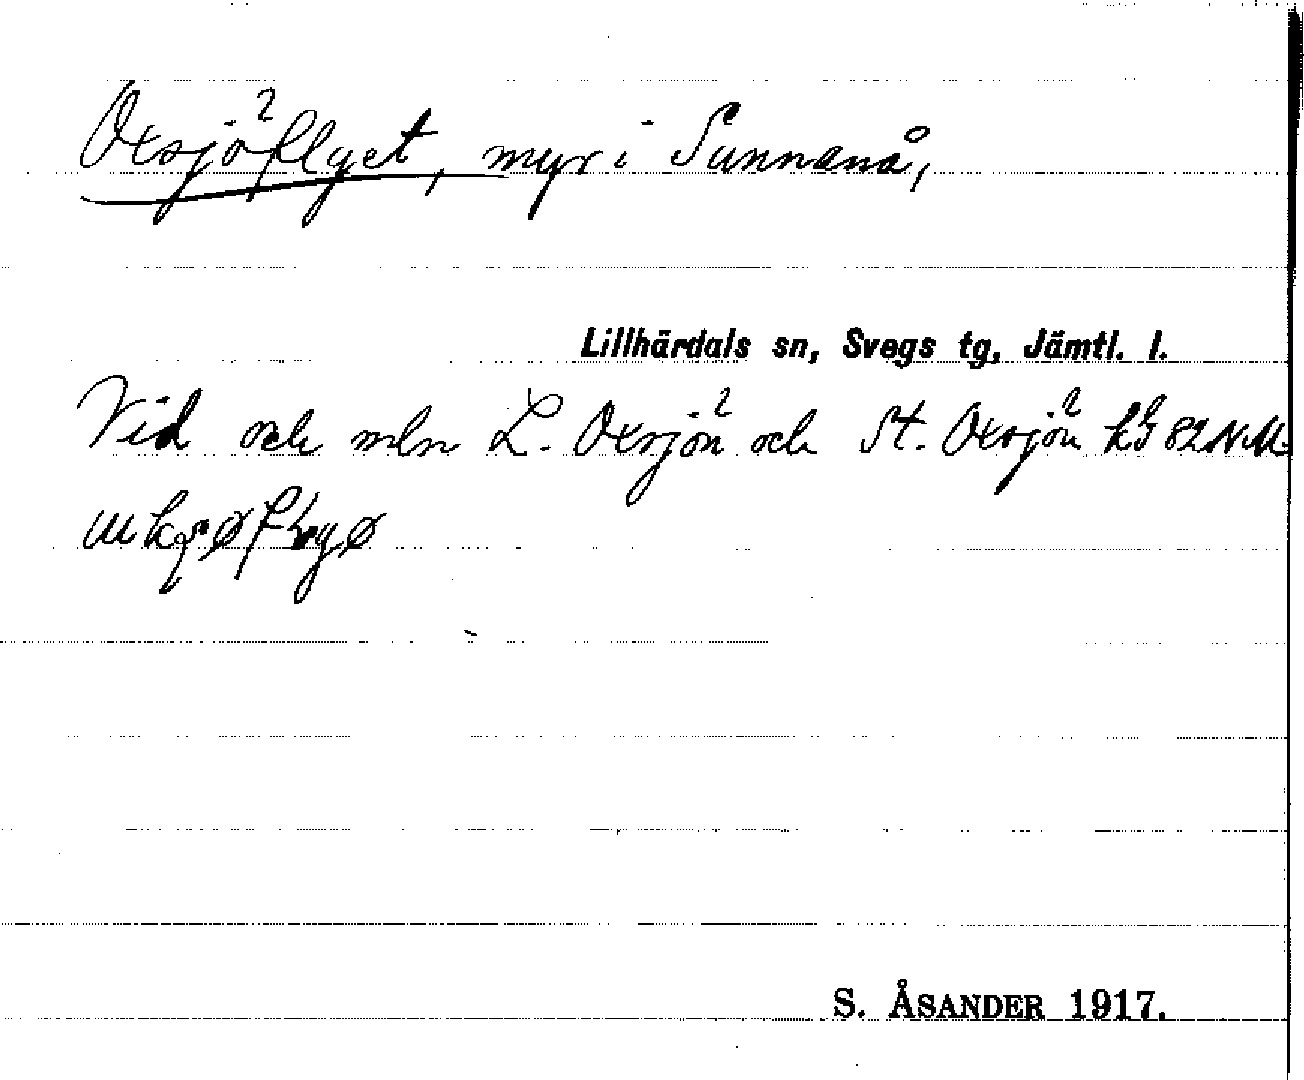 Oxsjöflyet, myr i Sunnanå,
Lillhärdals sn, Svegs tg, Jämtl. l.
Vid och mln L. Oxsjön och St. Oxsjön
S. ÅSANDER 1917.